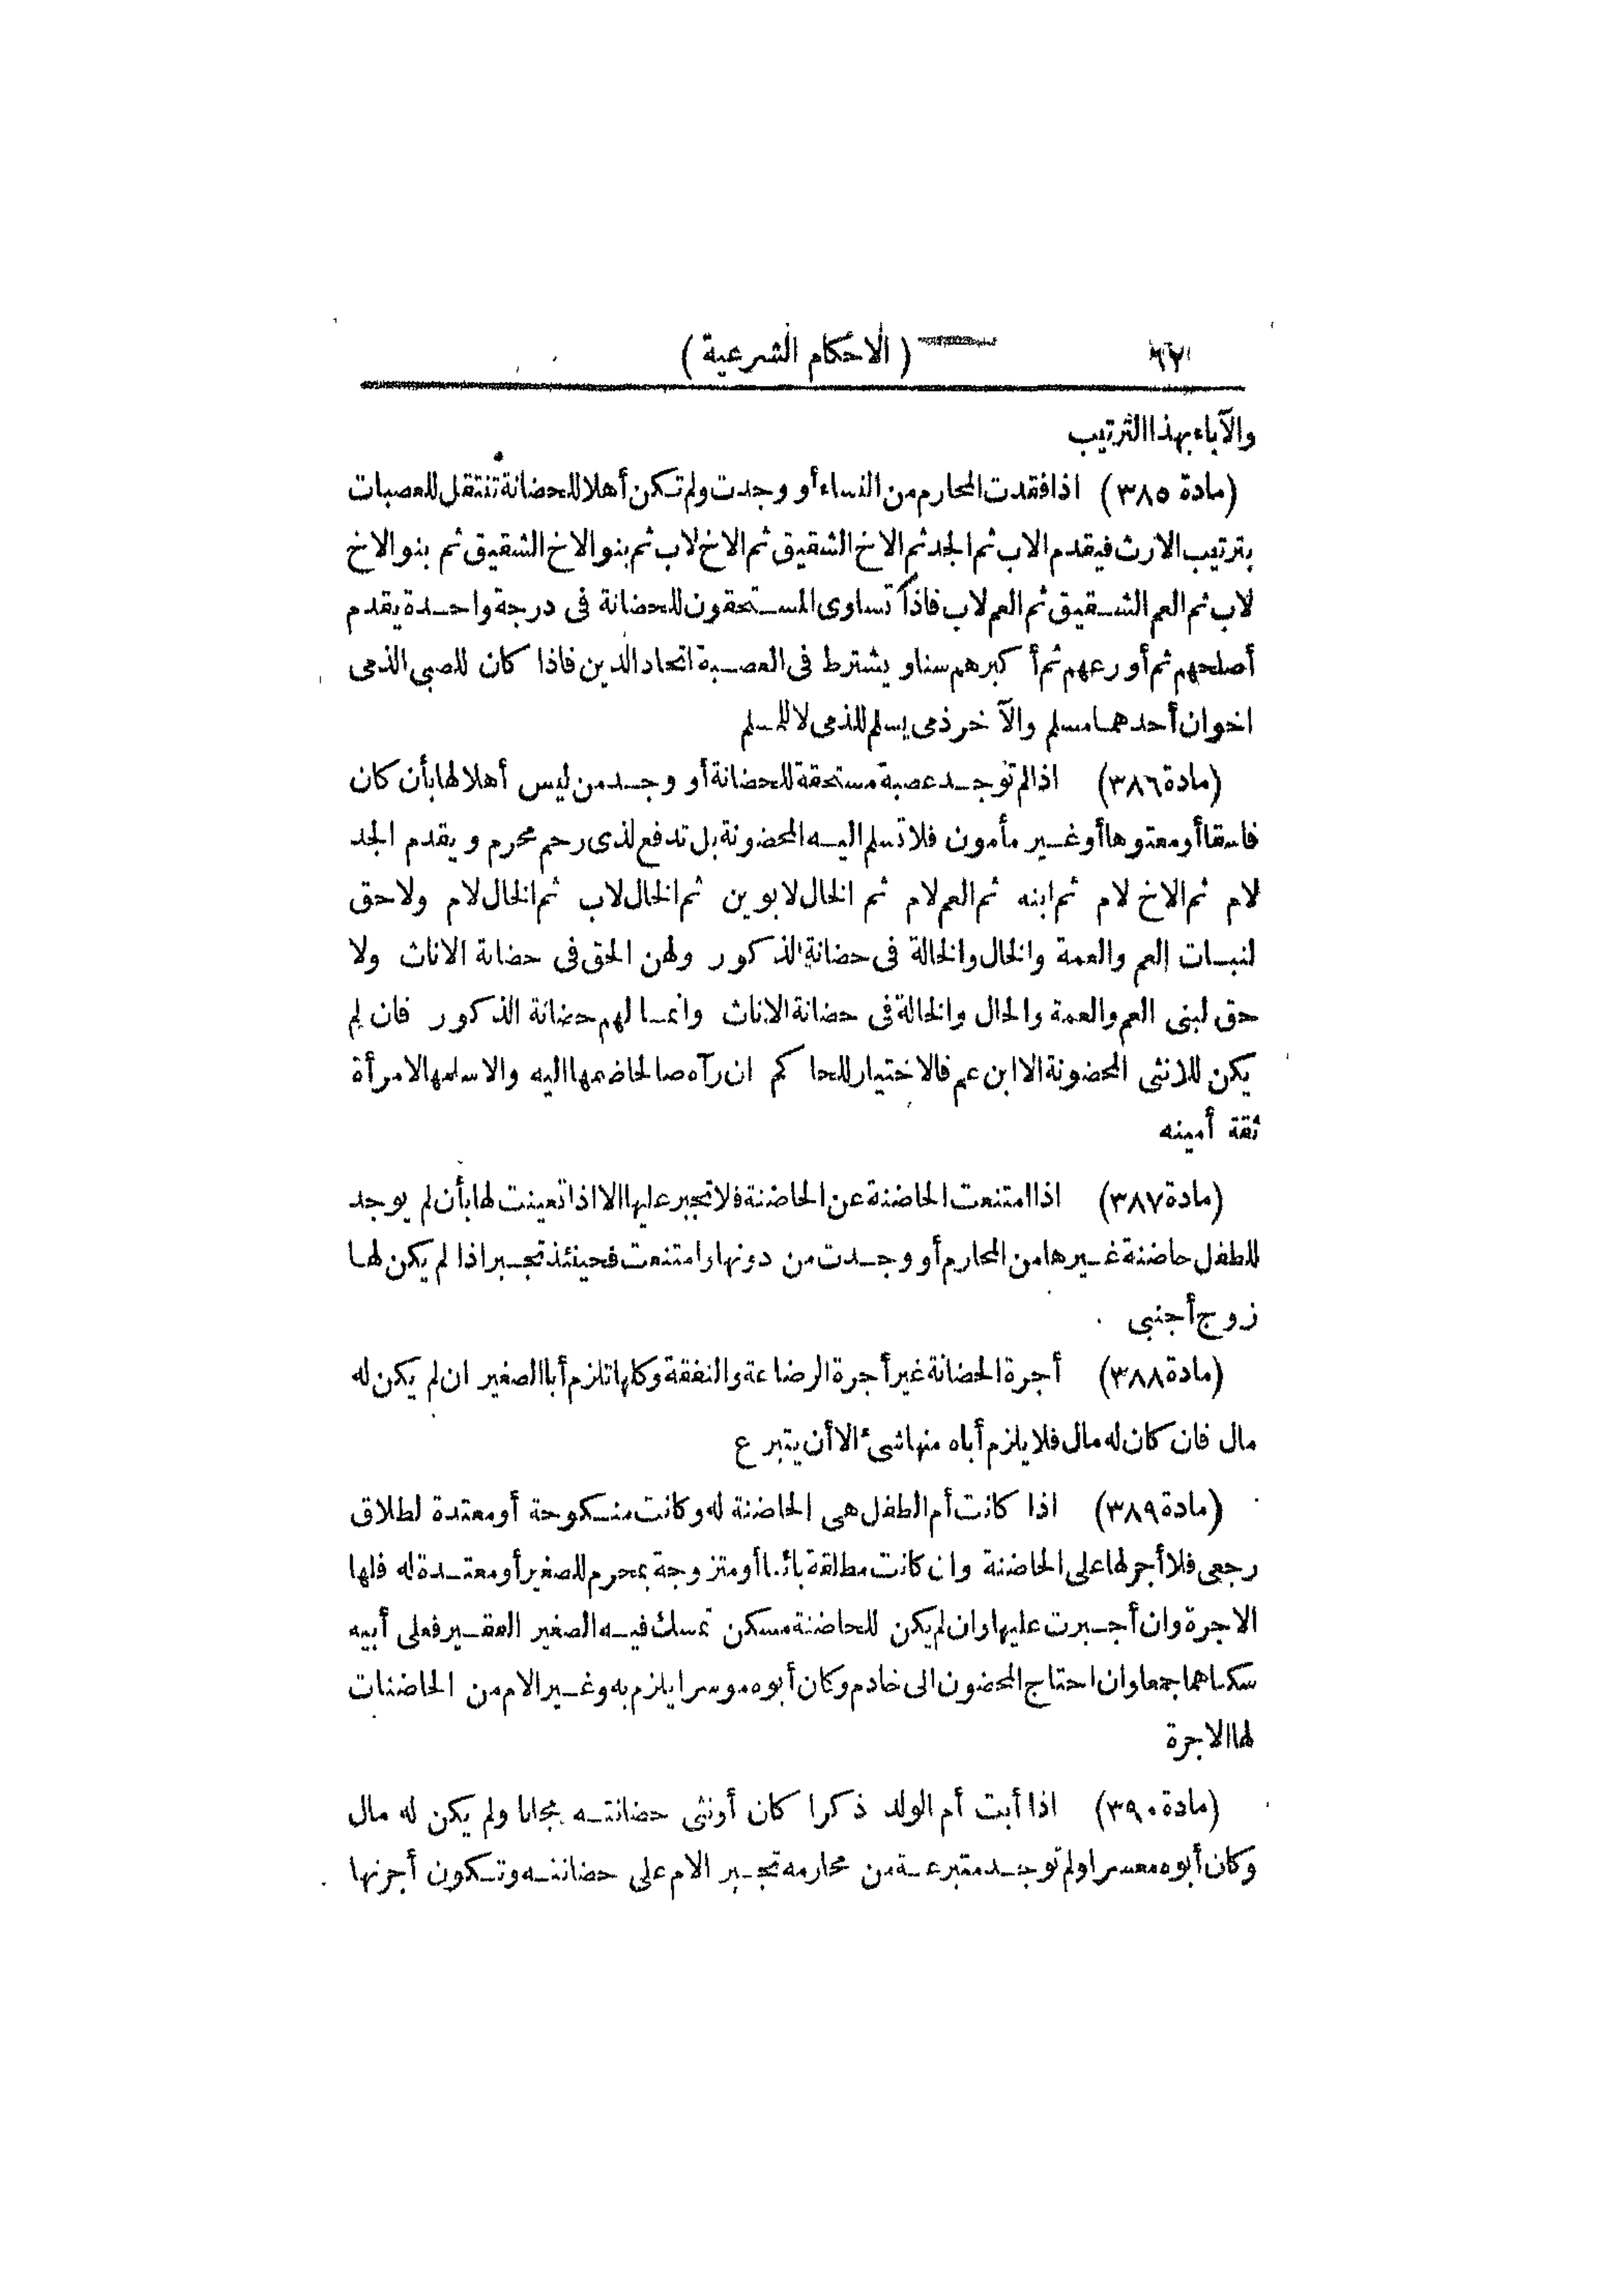 ٦٢ (الاحكام الشرعية)
والآباء بهذا الترتيب
(مادة ٣٨٥) اذا فقدت المحارم من النساء أو وجدت ولم تكن أهلا للحضانة تنتقل للعصبات
بترتيب الارث فيقدم الاب ثم الجد ثم الاخ الشقيق ثم الاخ لاب ثم بنو الاخ الشقيق ثم بنو الاخ
لاب ثم العم الشقيق ثم العم لاب فاذا تساوى المستحقون للحضانة فى درجة واحدة يقدم
أصلحهم ثم أورعهم ثم أكبرهم سنا ويشترط فى العصبة اتحاد الدين فاذا كان للصبى الذمى
اخوان أحدهما مسلم والآخر ذمى يسلم للذمى لا للمسلم
(مادة ٣٨٦) اذا لم توجد عصبة مستحقة للحضانة أو وجد من ليس أهلا لها بأن كان
فاسقا أو معتوها أو غير مأمون فلا تسلم اليه المحضونة بل تدفع لذى رحم محرم ويقدم الجد
لام ثم الاخ لام ثم ابنه ثم العم لام ثم الخال لابوين ثم الخال لاب ثم الخال لام ولا حق
لنبات العم والعمة والخال والخالة فى حضانة الذكور ولهن الحق فى حضانة الاناث ولا
حق لبنى العم والعمة والخال والخالة فى حضانة الاناث وانما لهم حضانة الذكور فان لم
يكن للانثى المحضونة الا ابن عم فالاختيار للحاكم ان رآه صالحا ضمها اليه والا سلمها لامرأة
ثقة أمينه
(مادة ٣٨٧) اذا امتنعت الحاضنة عن الحاضنة فلا تجبر عليها الا اذا تعينت لها بأن لم يوجد
للطفل حاضنة غيرها من المحارم أو وجدت من دونها وامتنعت فحينئذ تجبر اذا لم يكن لها
زوج أجنبى
(مادة ٣٨٨) أجرة الحضانة غير أجرة الرضاعة والنفقة وكلها تلزم أبا الصغير ان لم يكن له
مال فان كان له مال فلا يلزم أباه منها شئ الا أن يتبرع
(مادة ٣٨٩) اذا كانت أم الطفل هى الحاضنة له وكانت منكوحة أو معتدة لطلاق
رجعى فلا أجر لها على الحاضنة وان كانت مطلقة بائنا أو متزوجة بمحرم للصغير أو معتدة له فلها
الاجرة وان أجبرت عليها وان لم يكن للحاضنة مسكن تمسك فيه الصغير الفقير فعلى أبيه
سكناهما جمعا وان احتاج المحضون الى خادم وكان أبوه موسرا يلزم به وغير الام من الحاضنات
لها الاجرة
(مادة ٣٩٠) اذا أبت أم الولد ذكرا كان أونثى حضانته مجانا ولم يكن له مال
وكان أبوه معسرا ولم توجد متبرعة من محارمه تجبر الام على حضانته وتكون أجرتها